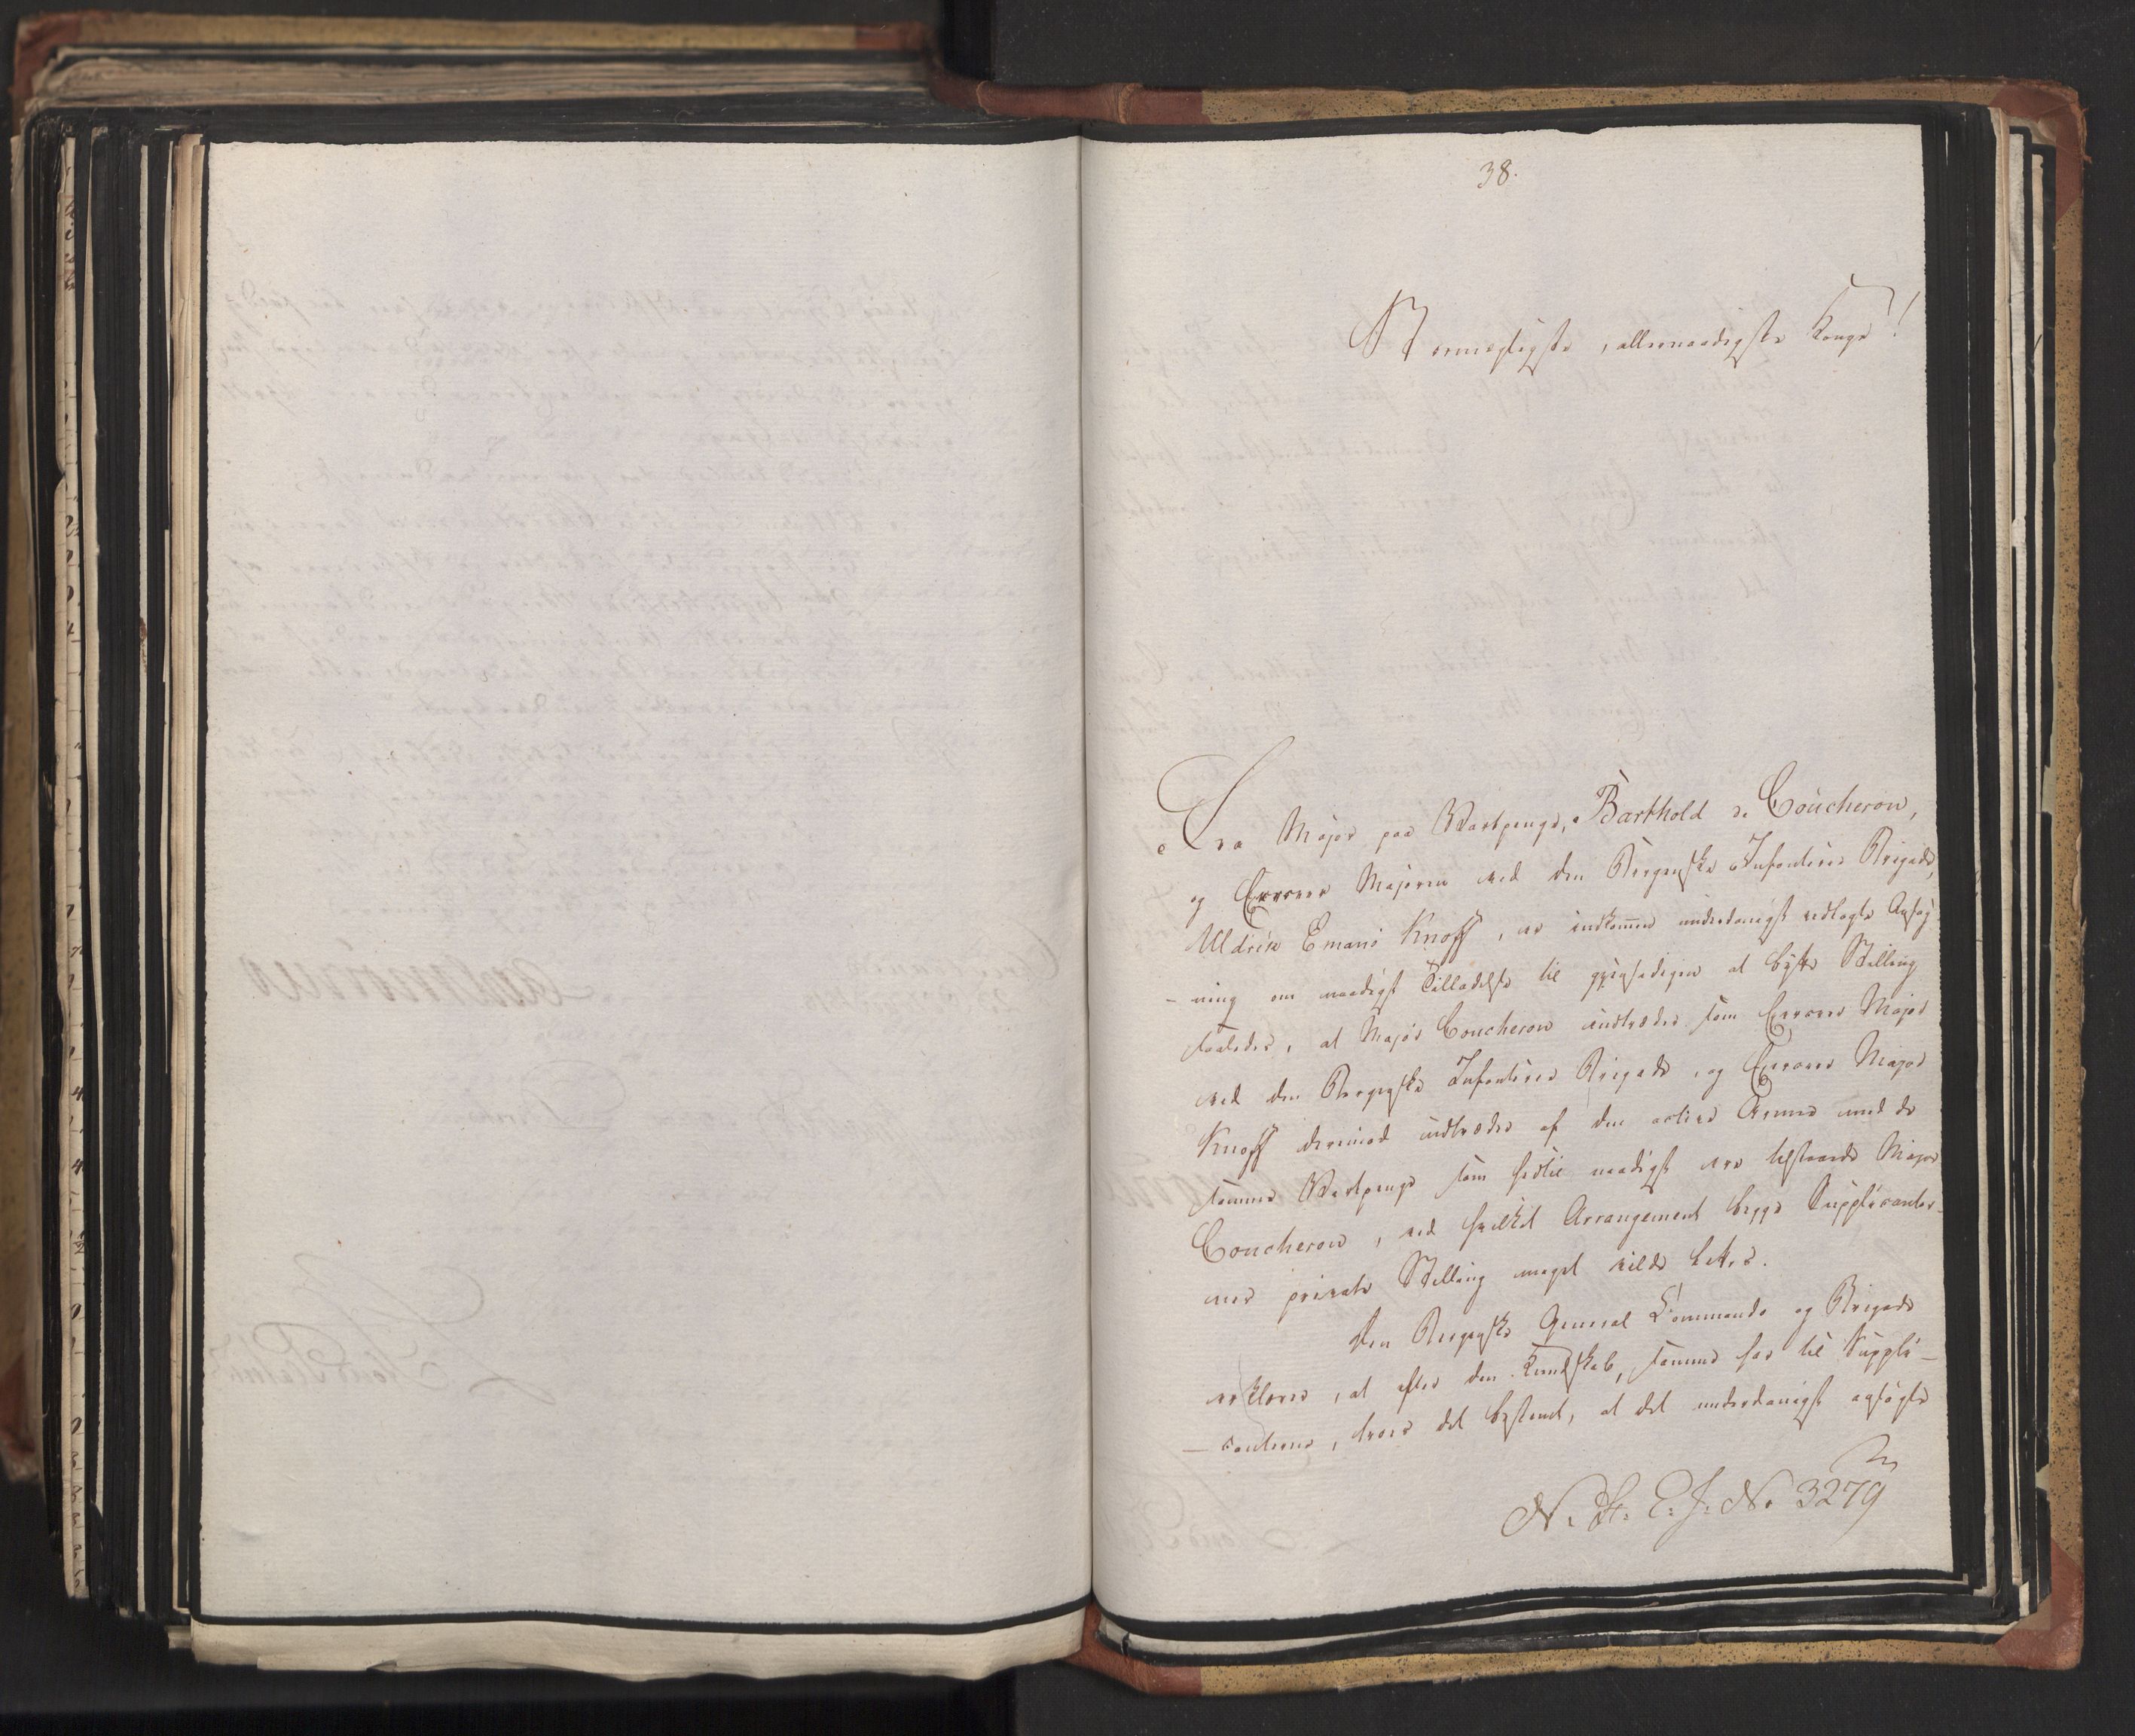 38.
Stormægtigste, allernaadigste Konge!
Fra Major paa Vartpenge, Barthold de Coucheron,
og Exercer Majoren ved den Bergenske Infanterie Brigade,
Uldrik Emani Knoff, er indkommen underdanigst vedlagte Ansøg-
-ning om naadigst Tilladelse til gjensidigen at bytte Stilling
saaledes, at Major Coucheron indtræder som Exercer Major
ved den Bergenske Infanterie Brigade, og Exercer Major
Knoff derimod udtræder af den active Armee med de
samme Vartpenge som hidtil naadigst ere tilstaaede Major
Coucheron, ved hvilket Arrangement begge Supplicanter-
nes private Stilling meget vilde lettes.
Den Bergenske General Commando og Brigade
erklærer, at efter den Kundskab, samme har til Suppli-
-canterne, troer det bestemt, at det underdanigst ansøgte
N: St: E: J: No 3279